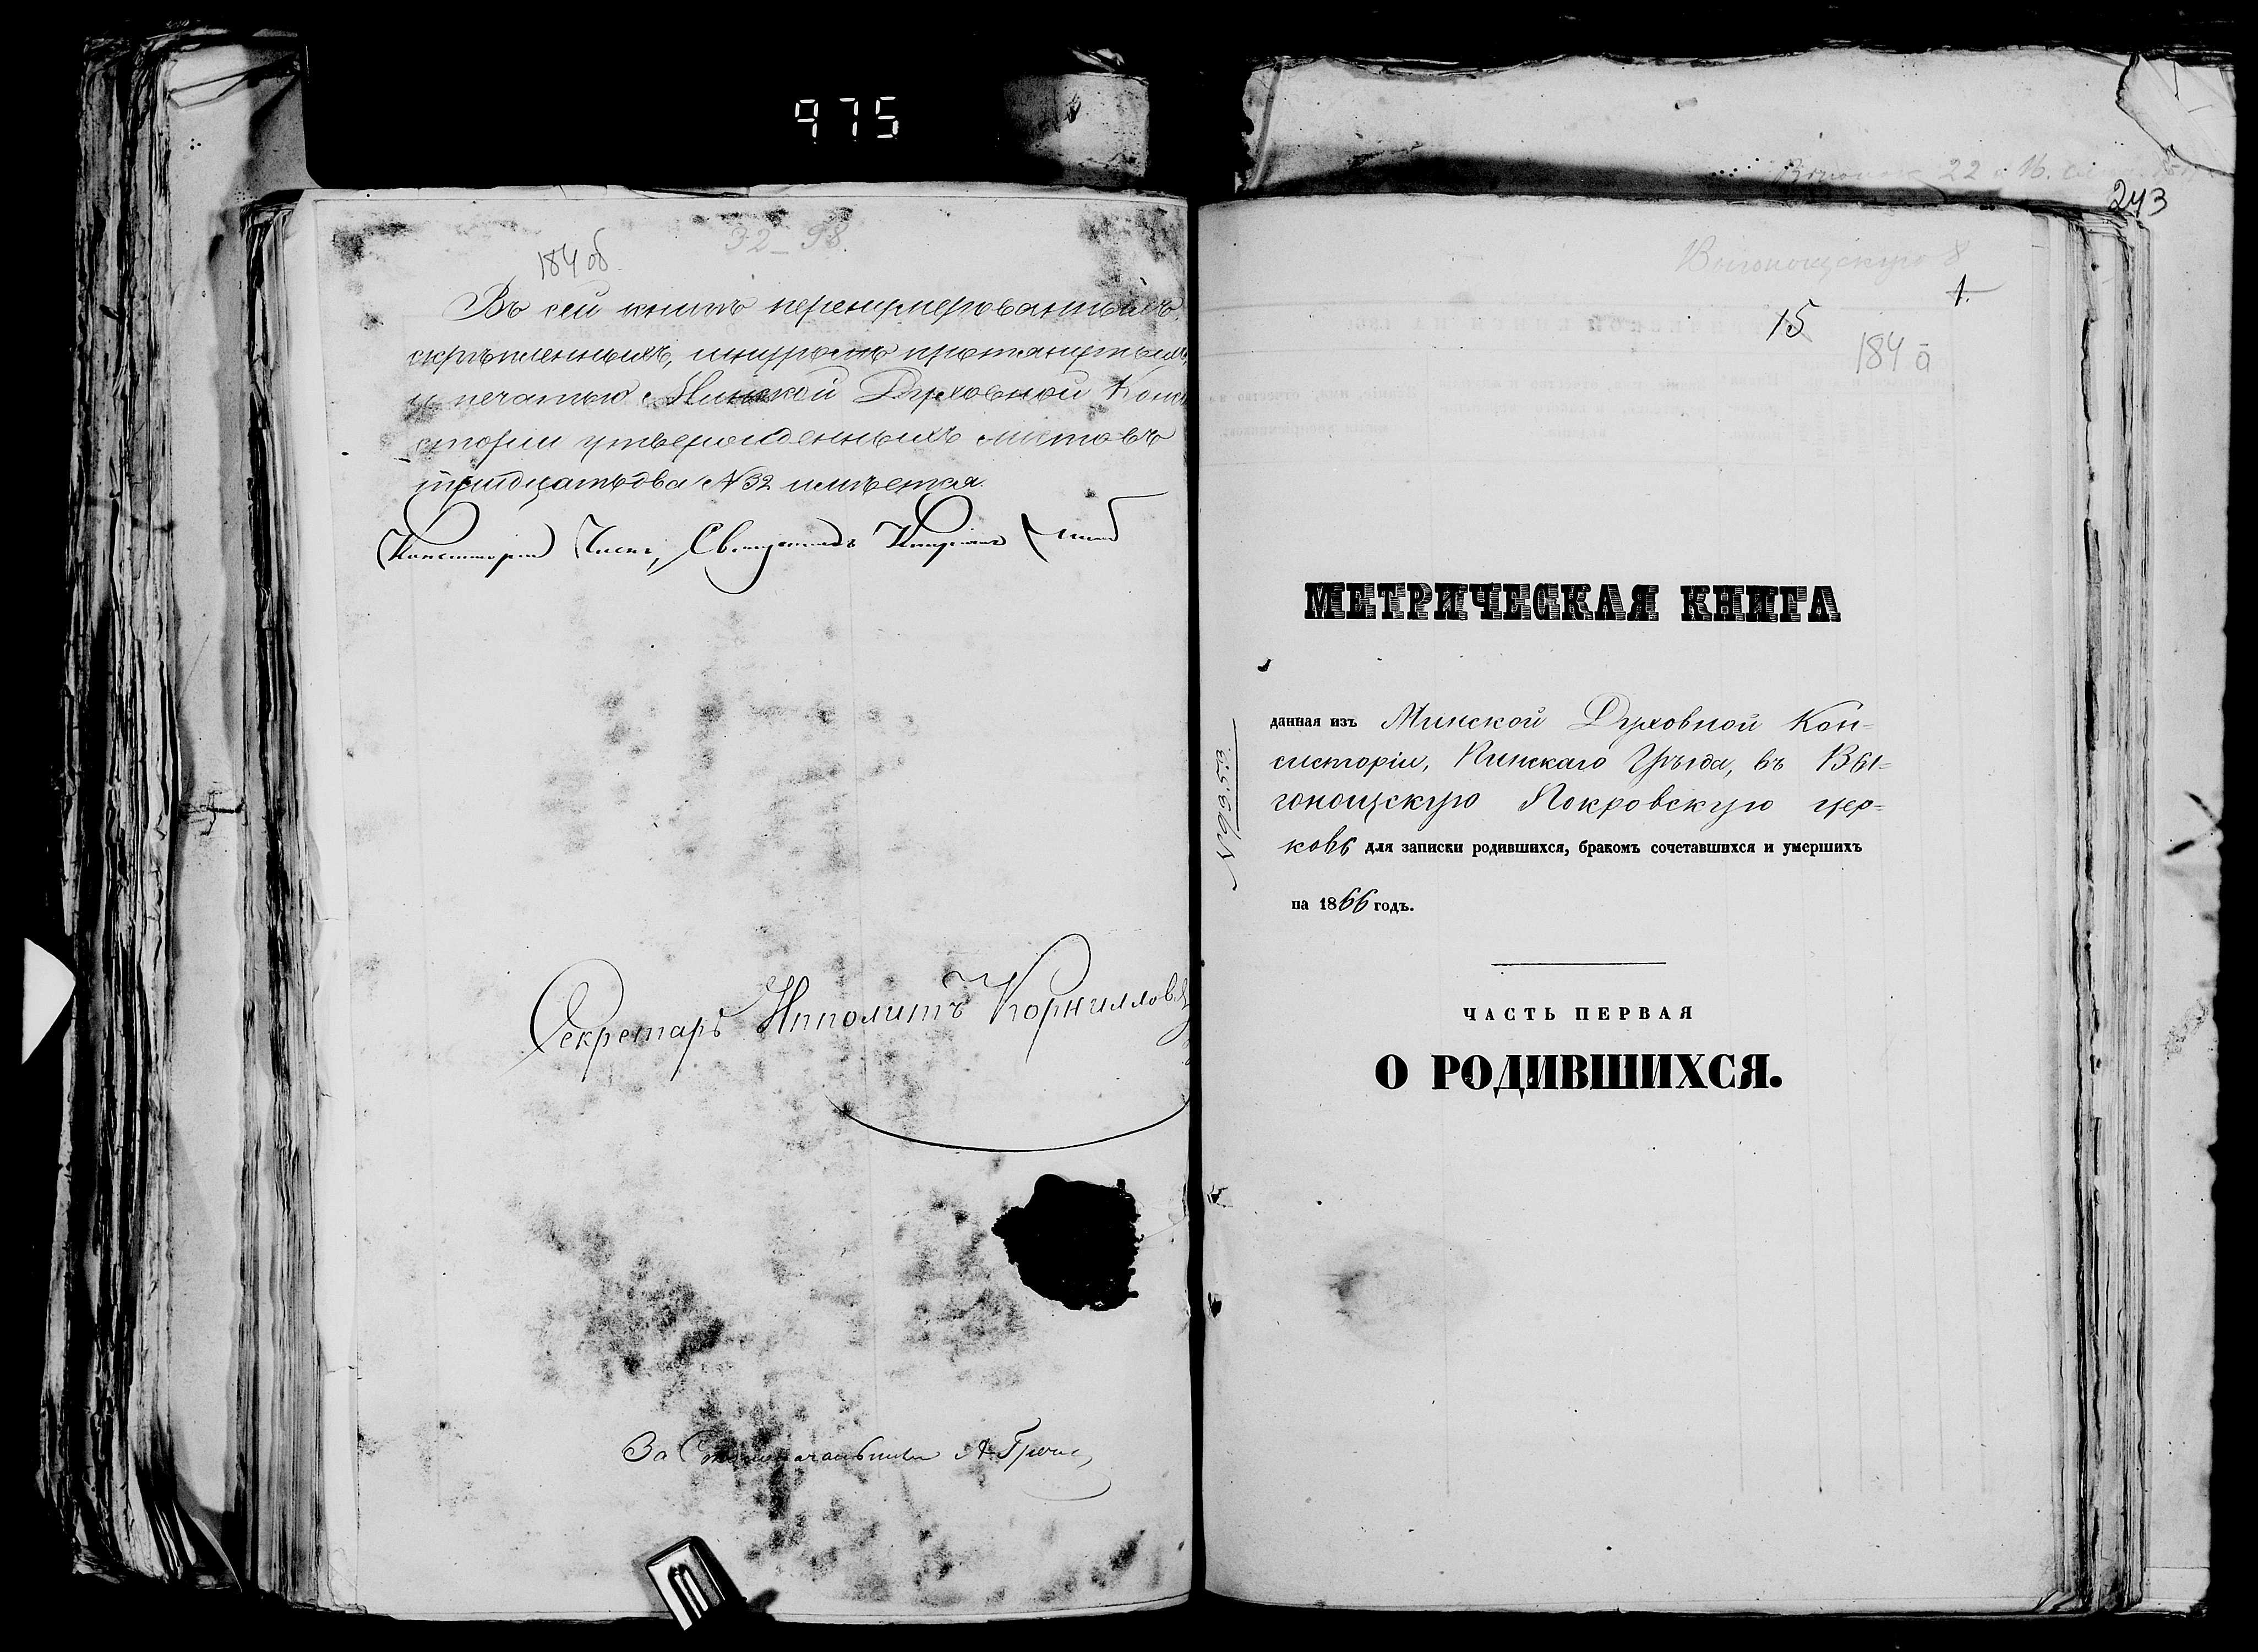 975
184 об
32-98.
Въ сей книгѣ перенумерованныхъ,
скрѣпленныхъ, шнуромъ протянутыхъ,
и печатью Минской Духовной Конси
сторіи утвержденныхъ листовъ
тритцать два №32 имѣется.
Консисторіи Членъ, Священникъ
Секретарь Ипполитъ Корнилловъ
За Столоначальника А.
243
Выгонощскую 8
1.
15
184 а
МЕТРИЧЕСКАЯ КНИГА
данная изъ Минской Духовной Кон=
систоріи, Пинскаго Уѣзда, въ Вы=
гонощскую Покровскую цер=
ковь для записки родившихся, бракомъ сочетавшихся и умершихъ
на 1866 годъ.
ЧАСТЬ ПЕРВАЯ
О РОДИВШИХСЯ.